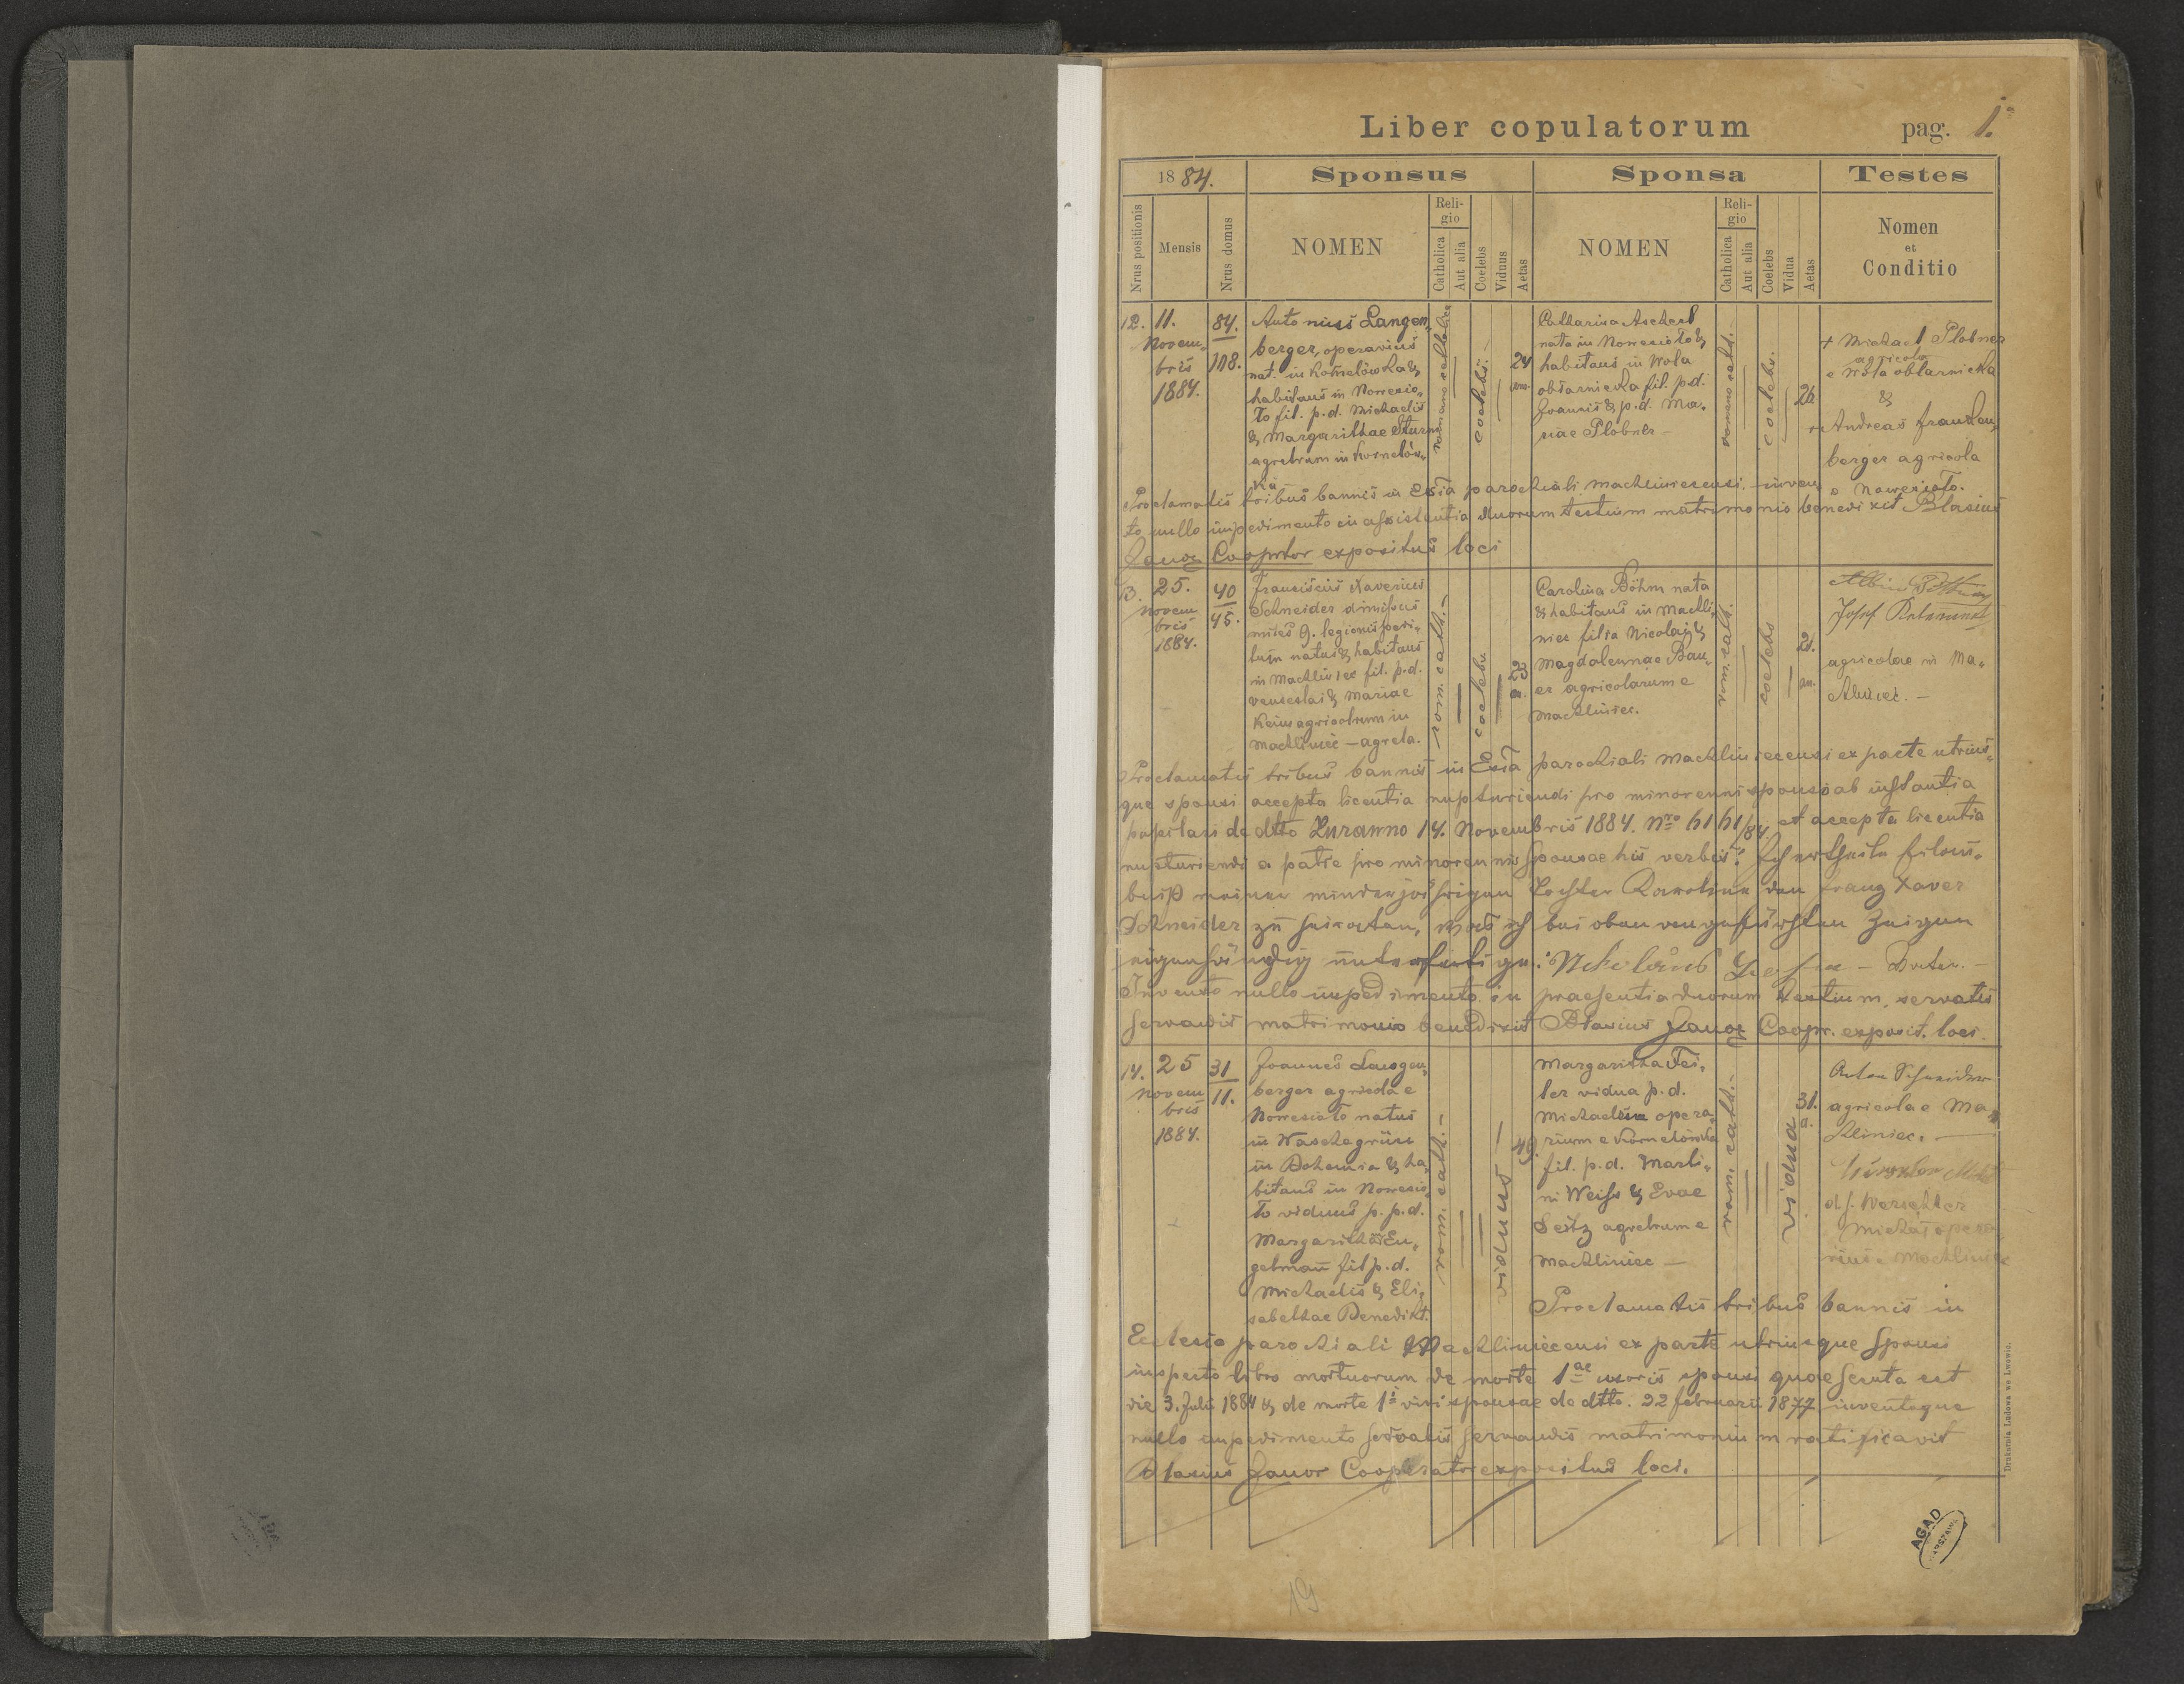 Liber copulatorum
pag. 1.
1884.
Sponsus
Sponsa
Testes
Nrus positionis
Mensis
Nrus domus
NOMEN
Religio
Catholica
Aut alia
Coelebs
Viduus
Aetas
NOMEN
Religio
Catholica
Aut alia
Coelebs
Vidua
Aetas
Nomen
et
Conditio
12.
11.
Novem„
bris
1884.
84.
108.
Antonius Langen„
berger, operarius
nat. in Kornelówka &
habitans in Nowesio„
ło fil. p.d. Michaelis
& Margarithae Sturm
agrelrum in Kornelów„
ka
romano catholica
coelebs.
24
ann.
Catharina Ascherl
nata in Nowesioło &
habitans in Wola
obłarnicka fil. p.d.
Joannis & p.d. Ma„
riae Plobner –
romano cath.
coelebs.
26.
+ Michael Plobner
agricola
e Wola obłarnicka
&
+ Andreas Franken„
berger agricola
e Nowesioło.
Proclamatis tribus bannis in Ecsia parochiali Machliniecensi inven
to nullo impedimento in assistentia duorum testium matrimonio benedixit Blasius
Janor Cooprtor expositus loci
13.
25.
Novem
bris
1884.
40
45.
Franciscus Xaverius
Schneider dimissus
miles 9. legionis pedi„
tum natus & habitans
in Machliniec fil. p.d.
Venceslai & Mariae
agricolrum in
Machliniec – agrcla.
rom. cath. –
coelebs.
23
a.
Carolina Böhm nata
& habitans in Machli„
niec filia Nicolai &
Magdalennae Bau„
er agricolarum e
Machliniec.
rom. cath.
coelebs
21.
an.
Josef
agricolae in Ma„
chliniec. –
Proclamatis tribus bannis in Ecsia parochiali Machliniecensi ex parte utrius„
que sponsi accepta licentia nupturiendi pro minorenni sponso ab instantia
pupilari de dtto Żurawno 14. Novembris 1884. Nro 6161/84 et accepta licentia
nupturiendi a patre pro minorennis sponsae his verbis: Ich ertheile Erlau„
bniß meiner minderjährigen Tochter Karolina den Franz Xaver
Schneider zu heiraten, was ich bei oben angeführten Zeugen
eigenhändig unterfertige: Nikolaus – Vater. –
Invento nullo impedimento in praesentia duorum testium, servatis
servandis matrimonio benedixit Blasius Janor Coopr. exposit. loci.
14.
25
Novem
bris
1884.
31
11.
Joannes Langen„
berger agricola e
Nowesioło natus
in Waschagrün
in Bohemia & ha„
bitans in Nowesio„
ło viduus p. p.d.
Margaritha En„
gelman fil p.d.
Michaelis & Eli„
sabethae Benedikt.
rom. cath. –
viduus –
49.
Margaritha Fei„
ler vidua p.d.
Michaelis opera„
rium e Kornelówka
fil. p.d. Marti„
ni Weiss & Evae
Seitz agrelrum e
Machliniec –
rom. cath. –
vidua
31.
a.
Anton Schneider
agricola e Ma„
chliniec. –
Michał opera„
rius e Machliniec
Proclamatis tribus bannis in
Ecclesia parochiali Machliniecensi ex parte utriusque sponsi
inspecto libro mortuorum de morte 1ae uxoris sponsi quae secuta est
die 3. Julii 1884 & de morte 1i viri sponsae de dtto. 22 februarii 1877 inventoque
nullo impedimento servatis servandis matrimonium ratificavit
Blasius Janor Cooperator expositus loci.
Drukarnia Ludowa we Lwowie.
AGAD
WARSZAWA
19